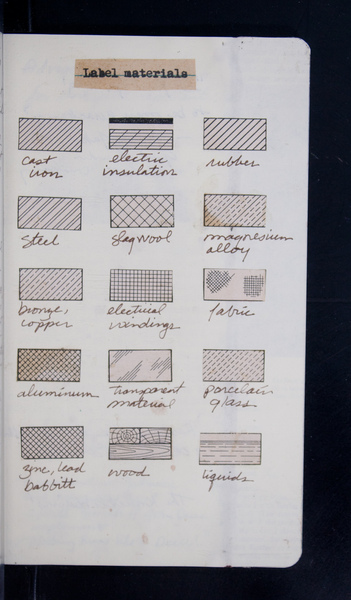 Label materials
cast
iron
electric
insulation
rubber
steel
slag wool
magnesium
alloy
bronze,
copper
electrical
windings
fabric
aluminum
transparent
material
porcelain
glass
zinc, lead
babbitt
wood
liquids